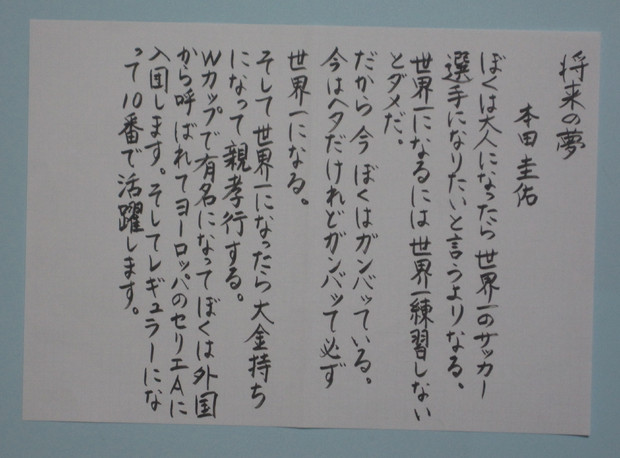 将来の夢
本田圭佑
ぼくは大人になったら世界一のサッカー
選手になりたいと言うよりなる。
世界一になるには世界一練習しない
とダメだ。
だから今ぼくはガンバッている。
今はヘタだけれどガンバッて必ず
世界一になる。
そして世界一になったら大金持ち
になって親孝行する。
Wカップで有名になってぼくは外国
から呼ばれてヨーロッパのセリエAに
入団します。そしてレギュラーにな
って10番で活躍します。